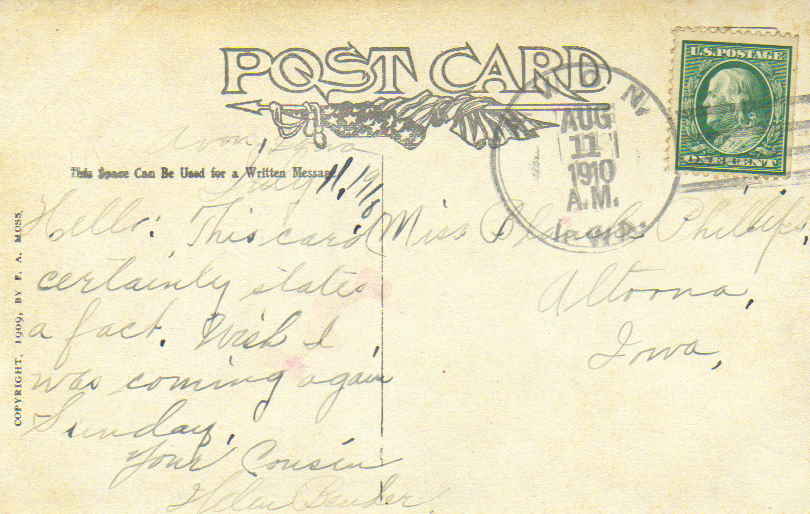 POST CARD
U.S. POSTAGE
ONE CENT
AVON,
AUG
11
1910
A.M.
Avon, Iowa
This Space Can Be Used for a Written Message
11, 1910
Hello: This card
certainly states
a fact. Wish I
was coming again
Sunday.
Your Cousin
Helen Bender.
Miss Phillips,
Altoona,
Iowa,
COPYRIGHT, 1909, BY F. A. MOSS